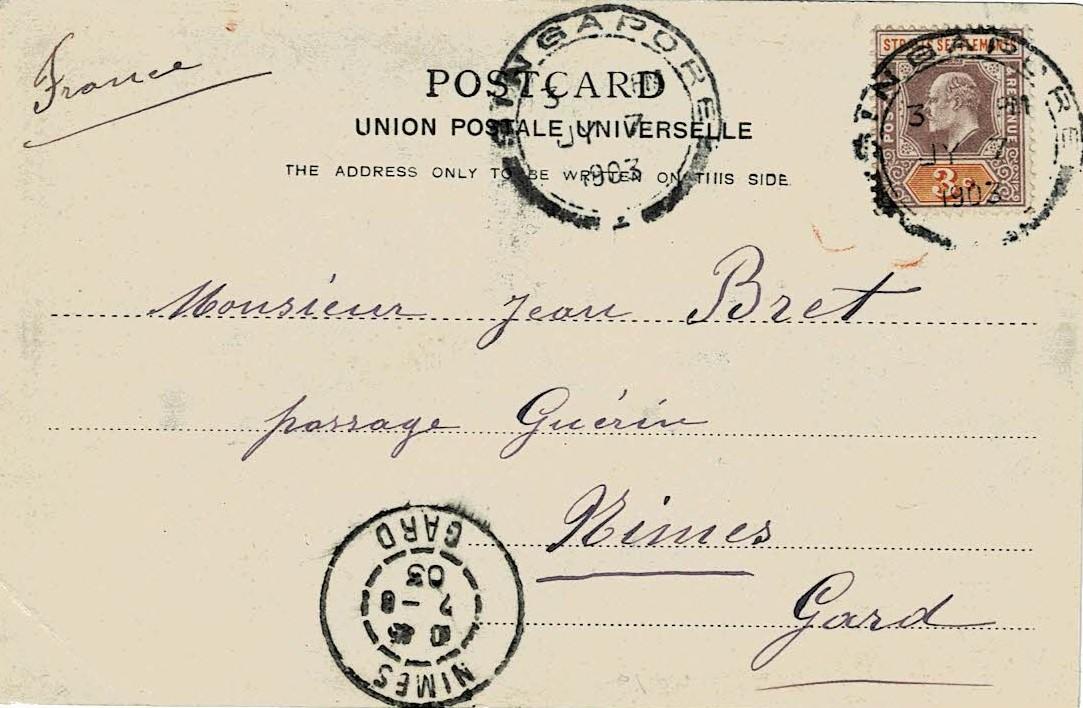 France
POSTCARD
UNION POSTALE UNIVERSELLE
THE ADDRESS ONLY TO BE WRITTEN ON THIS SIDE.
SINGAPORE
3 PM
JY 7
1903
1
STRAITS SETTLEMENTS
POSTAGE & REVENUE
3c.
SINGAPORE
3 PM
JY 7
1903
Monsieur Jean Bret
passage Guérin
Nimes
Gard
NIMES
7 - 8
03
GARD